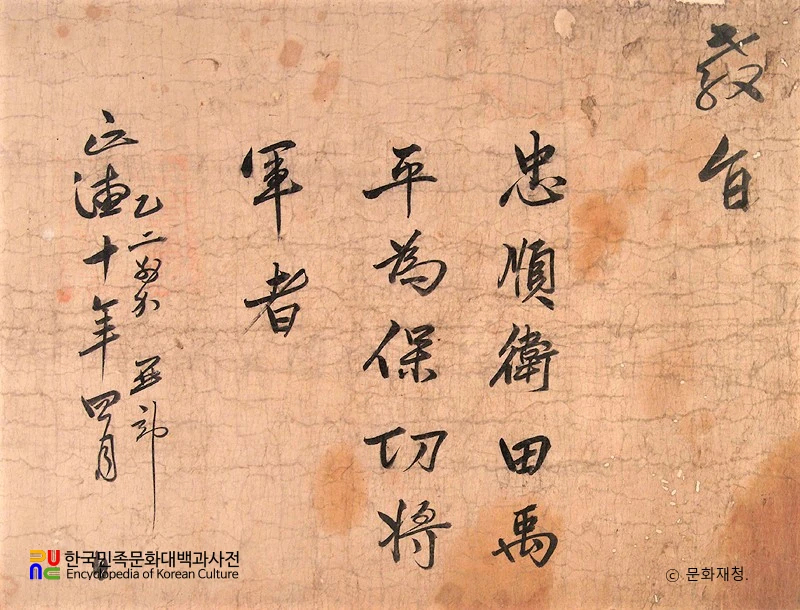 敎旨
忠順衛田禹
平為保功將
軍者
正德十年四月
한국민족문화대백과사전
Encyclopedia of Korean Culture
ⓒ 문화재청.